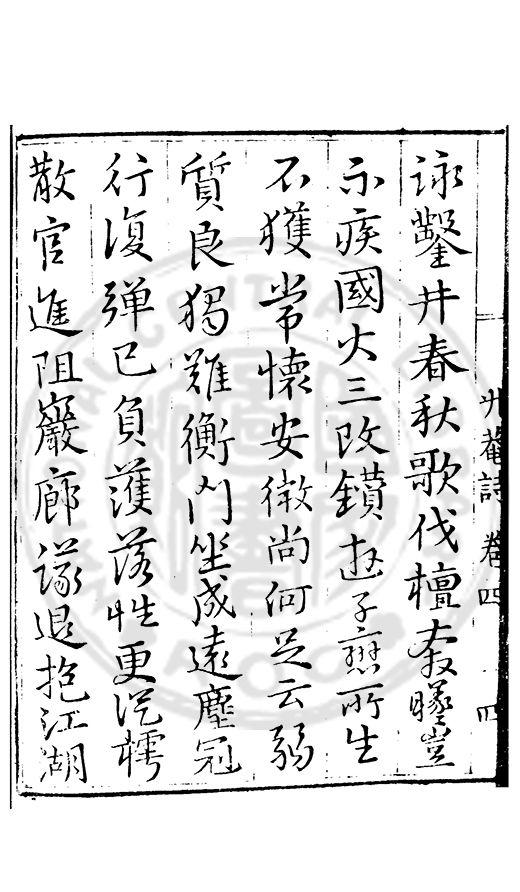 升菴詩 卷四 四
詠鑿井春秋歌伐檀豈
示疾國火三改鑽遊子戀所生
不獲常懷安微尚何足云弱
質良獨難衡門坐成遠塵冠
行復彈已負濩落性更從樗
散官進阻巖廊退抱江湖